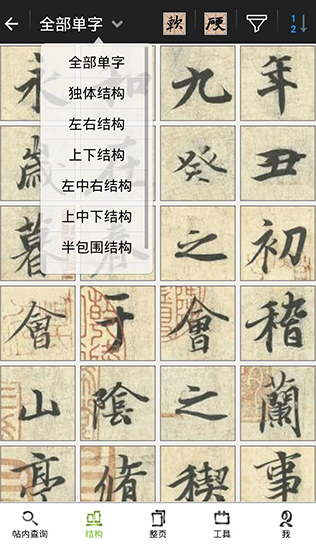 全部单字 軟 硬 1 2
全部单字
独体结构
左右结构
上下结构
左中右结构
上中下结构
半包围结构
永 和 九 年
歲 在 癸 丑
暮 春 之 初
會 于 會 稽
山 陰 之 蘭
亭 脩 稧 事
帖内查询 结构 整页 工具 我